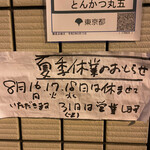 とんかつ丸五
東京都
夏季休業のおしらせ
8月16.17.18日は休ませて
月 火 水
いただきます 31日は営業します